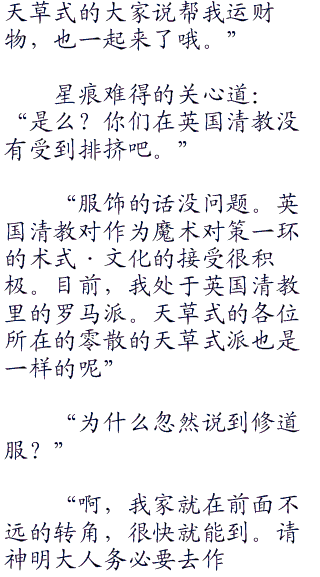 天草式的大家说帮我运财
物，也一起来了哦。”
星痕难得的关心道：
“是么？你们在英国清教没
有受到排挤吧。”
“服饰的话没问题。英
国清教对作为魔术对策一环
的术式·文化的接受很积
极。目前，我处于英国清教
里的罗马派。天草式的各位
所在的零散的天草式派也是
一样的呢”
“为什么忽然说到修道
服？”
“啊，我家就在前面不
远的转角，很快就能到。请
神明大人务必要去作